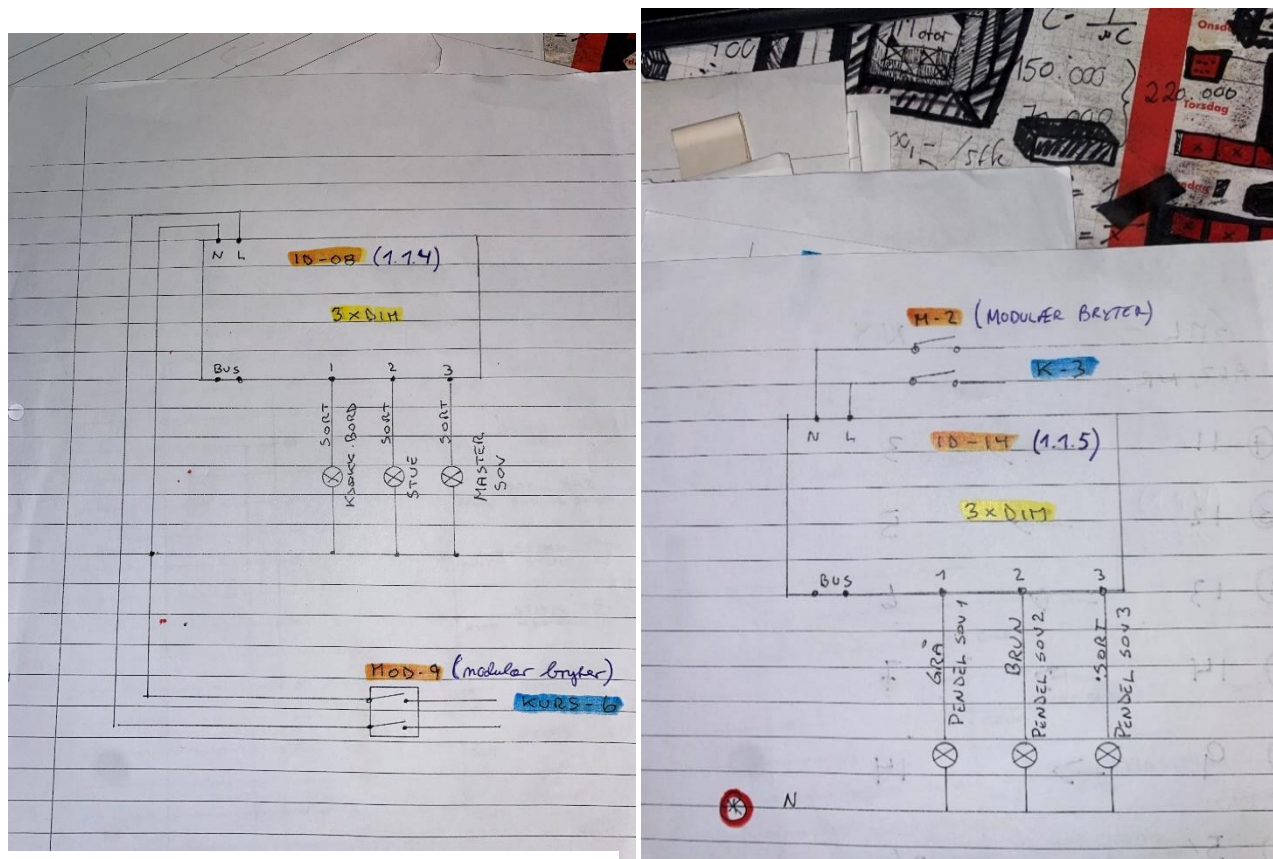 N L
ID-08 (1.1.4)
3xDIM
BUS
1 2 3
SORT
KJØKK.BORD
SORT
STUE
SORT
MASTER
SOV
MOD-9 (modulær bryter)
KURS-6
Motor
:00
C = 1
150.000
220.000
/stk
Torsdag
M-2 (MODULÆR BRYTER)
K-3
N L
ID-14 (1.1.5)
3xDIM
BUS
1 2 3
GRÅ
PENDEL SOV 1
BRUN
PENDEL SOV 2
SORT
PENDEL SOV 3
N